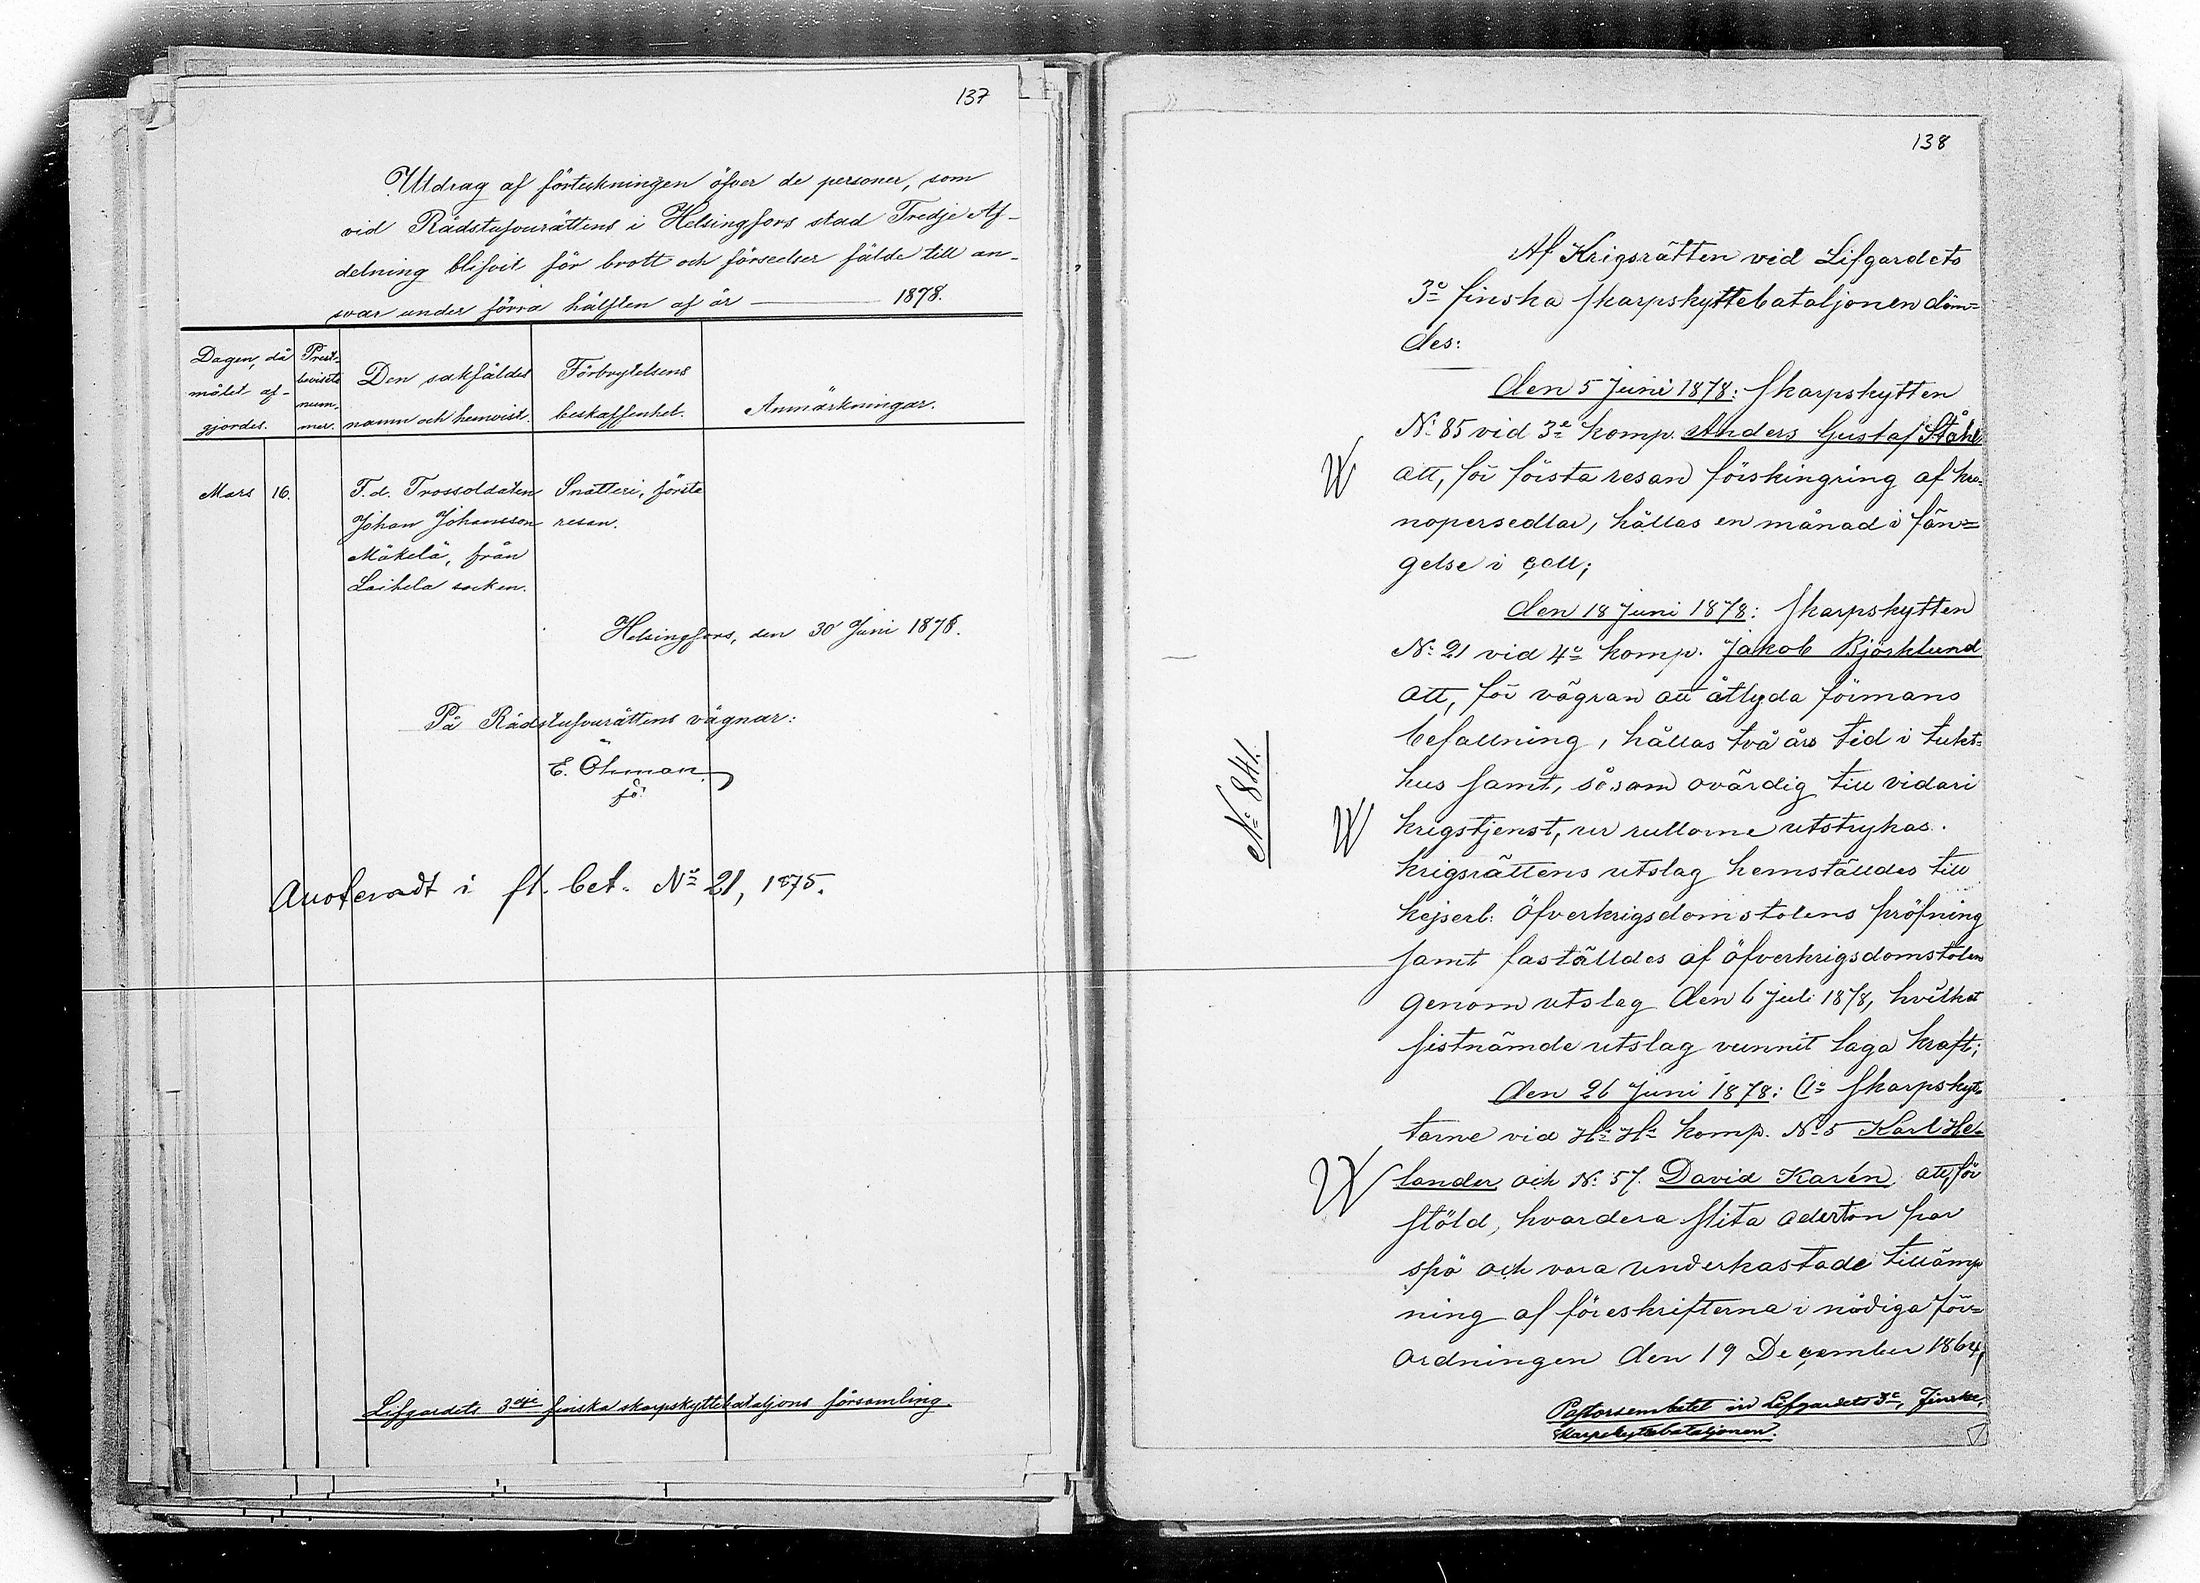 137
Utdrag af förteckningen öfver de personer, som
vid Rådstufvurättens i Helsingfors stad Tredje Af-
delning blifvit för brott och förseelser fälde till an-
svar under förra hälften af år ——— 1878.
Dagen, då
målet af-
gjordes.
Prest-
bevisets
num-
mer.
Den sakfäldes
namn och hemvist.
Förbrytelsens
beskaffenhet.
Anmärkningar.
Mars 16. F. d. Trossoldaten Snatteri, första
Johan Johansson resan.
Mäkelä, från
Laihela socken.
Helsingfors, den 30 Juni 1878.
På Rådstufvurättens vägnar:
E. Öhman.
Anoteradt i fl. bet. No 21, 1875.
Lifgardets 3dje finska skarpskyttebataljons församling.
138
Af Krigsrätten vid Lifgardets
3e finska skarpskyttebataljonen döm=
des:
den 5 Juni 1878: skarpskytten
N: 85 vid 3e komp. Anders Gustaf Ståhl
att, för första resan förskingring af kro-
nopersedlar, hållas en månad i fän=
gelse i cell;
den 18 Juni 1878: skarpskytten
N: 21 vid 4e komp. Jakob Björklund
att, för vägran att åtlyda förmans
befallning, hållas två års tid i tukt=
hus samt, såsom ovärdig till vidare
krigstjenst, ur rullorne utstrykas.
Krigsrättens utslag hemställdes till
Kejserl: Öfverkrigsdomstolens pröfning
samt faställdes af Öfverkrigsdomstolen
genom utslag den 6 Juli 1878, hvilket
sistnämde utslag vunnit laga kraft;
No 841.
den 26 Juni 1878: skarpskyt-
tarne vid komp. No 5 Karl He-
lander och N: 57. David Karén att, för
stöld, hvardera slita aderton par
spö och vara underkastade tillämp
ning af föreskrifterna i nådiga för=
ordningen den 19 December 1864,
Pastorsembetet vid Lifgardets 3e, Finska,
skarpskyttebataljonen.